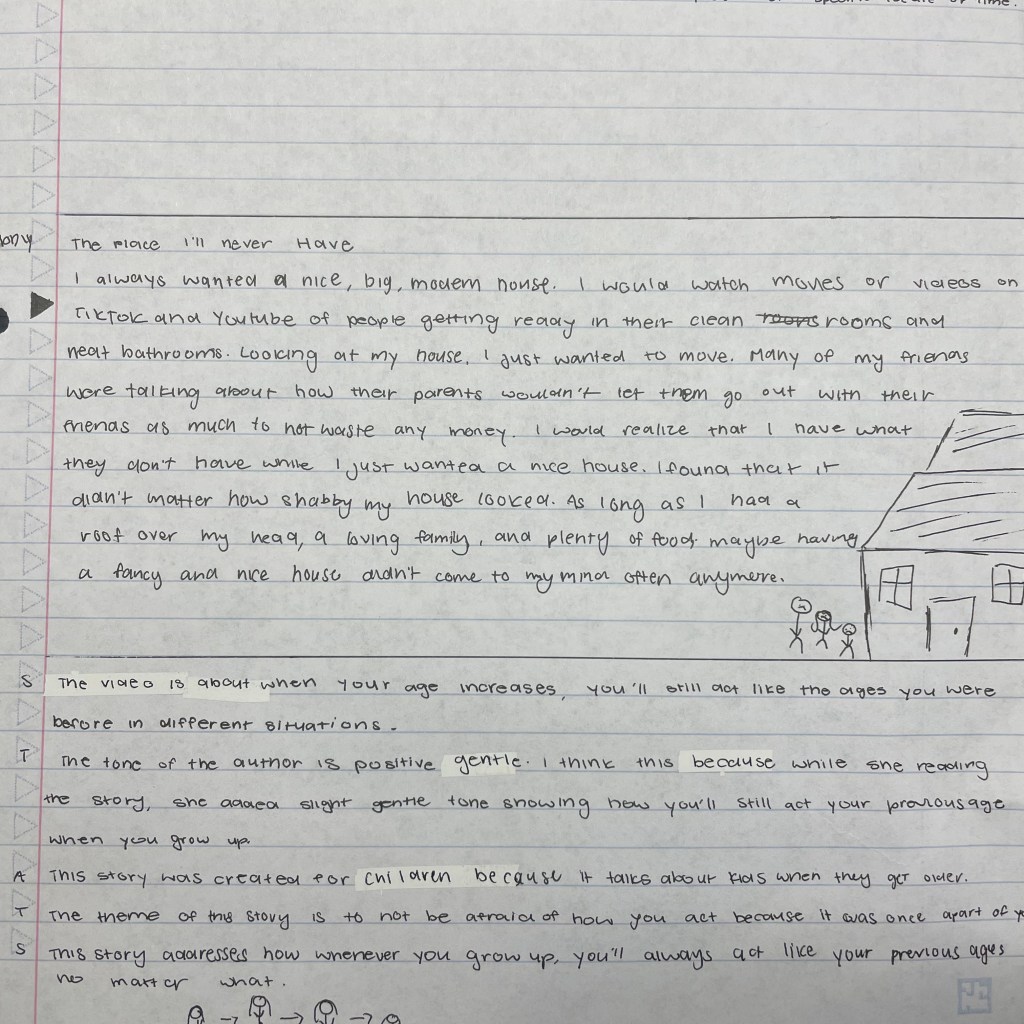 The Place I'll never Have
I always wanted a nice, big, modern house. I would watch movies or videos on
TikTok and Youtube of people getting ready in their clean rooms rooms and
neat bathrooms. Looking at my house, I just wanted to move. Many of my friends
were talking about how their parents wouldn't let them go out with their
friends as much to not waste any money. I would realize that I have what
they don't have while I just wanted a nice house. I found that it
didn't matter how shabby my house looked. As long as I had a
roof over my head, a loving family, and plenty of food, maybe having
a fancy and nice house didn't come to my mind often anymore.
S The video is about when your age increases, you'll still act like the ages you were
before in different situations.
T The tone of the author is positive gentle. I think this because while she reading
the story, she added slight gentle tone showing how you'll still act your previous age
when you grow up.
A This story was created for children because it talks about kids when they get older.
T The theme of this story is to not be afraid of how you act because it was once apart of
S This story addresses how whenever you grow up, you'll always act like your previous ages
no matter what.